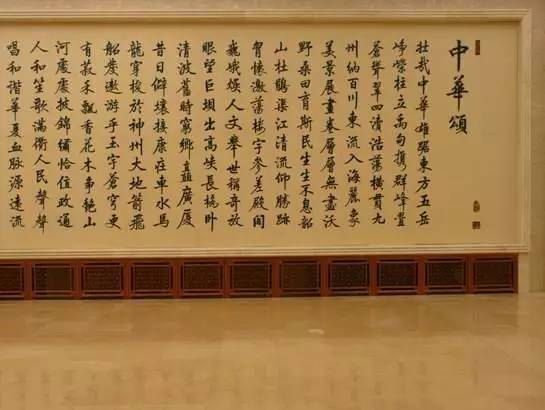 中華頌
壯哉中華雄踞東方五岳
崢嶸柱立禹甸攜群峰疊
蒼聳翠四瀆浩蕩橫貫九
州納百川東流入海麗象
美景展畫卷層層無盡沃
野桑田育斯民生生不息韶
山杜鵑渠江清流仰勝跡
賢懷激蕩樓宇參差殿閣
巍峨煥人文舉世稱奇放
眼望巨壩出高峽長橋臥
清波舊時窮鄉矗廣廈
昔日僻壤接康莊車水馬
龍穿梭於神州大地箭飛
船度遨游乎玉宇蒼穹更
有菽禾飄香花木爭艷山
河處處披錦繡恰值政通
人和笙歌滿衢人民聲聲
唱和諧華夏血脉源遠流